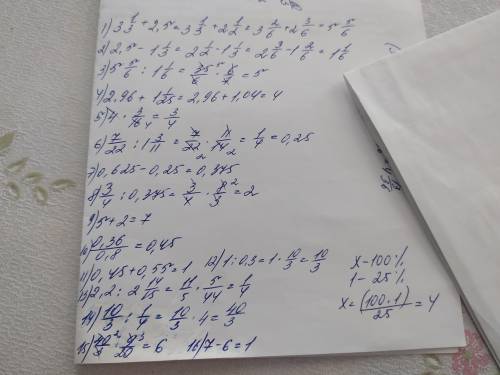 1) 3 1/3 + 2,5 = 3 1/3 + 2 1/2 = 3 2/6 + 2 3/6 = 5 5/6
2) 2,5 - 1 1/3 = 2 1/2 - 1 1/3 = 2 3/6 - 1 2/6 = 1 1/6
3) 5 5/6 : 1 1/6 = 35/6 · 6/7 = 5
4) 2,96 + 1 1/25 = 2,96 + 1,04 = 4
5) 4 · 3/16 = 3/4
6) 7/22 : 1 3/11 = 7/22 · 11/14 = 1/4 = 0,25
7) 0,625 - 0,25 = 0,375
8) 3/4 : 0,375 = 3/4 · 8/3 = 2
9) 5 + 2 = 7
10) 0,36/0,8 = 0,45
11) 0,45 + 0,55 = 1 12) 1 : 0,3 = 1 · 10/3 = 10/3
13) 2,2 : 2 14/15 = 11/5 · 5/44 = 1/4
14) 10/3 : 1/4 = 10/3 · 4 = 40/3
15) 40/3 · 9/20 = 6 16) 7 - 6 = 1
x - 100%
1 - 25%
x = (100·1)/25 = 4